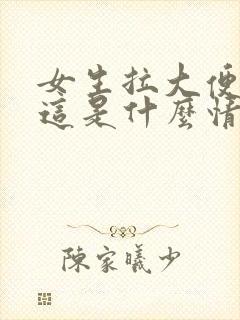 女生拉大便
這是什麼情
陳家曦少